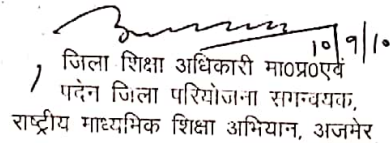 10/9/10
जिला शिक्षा अधिकारी मा0प्र0एवं
पदेन जिला परियोजना सगन्वयक,
राष्ट्रीय माध्यमिक शिक्षा अभियान, अजमेर